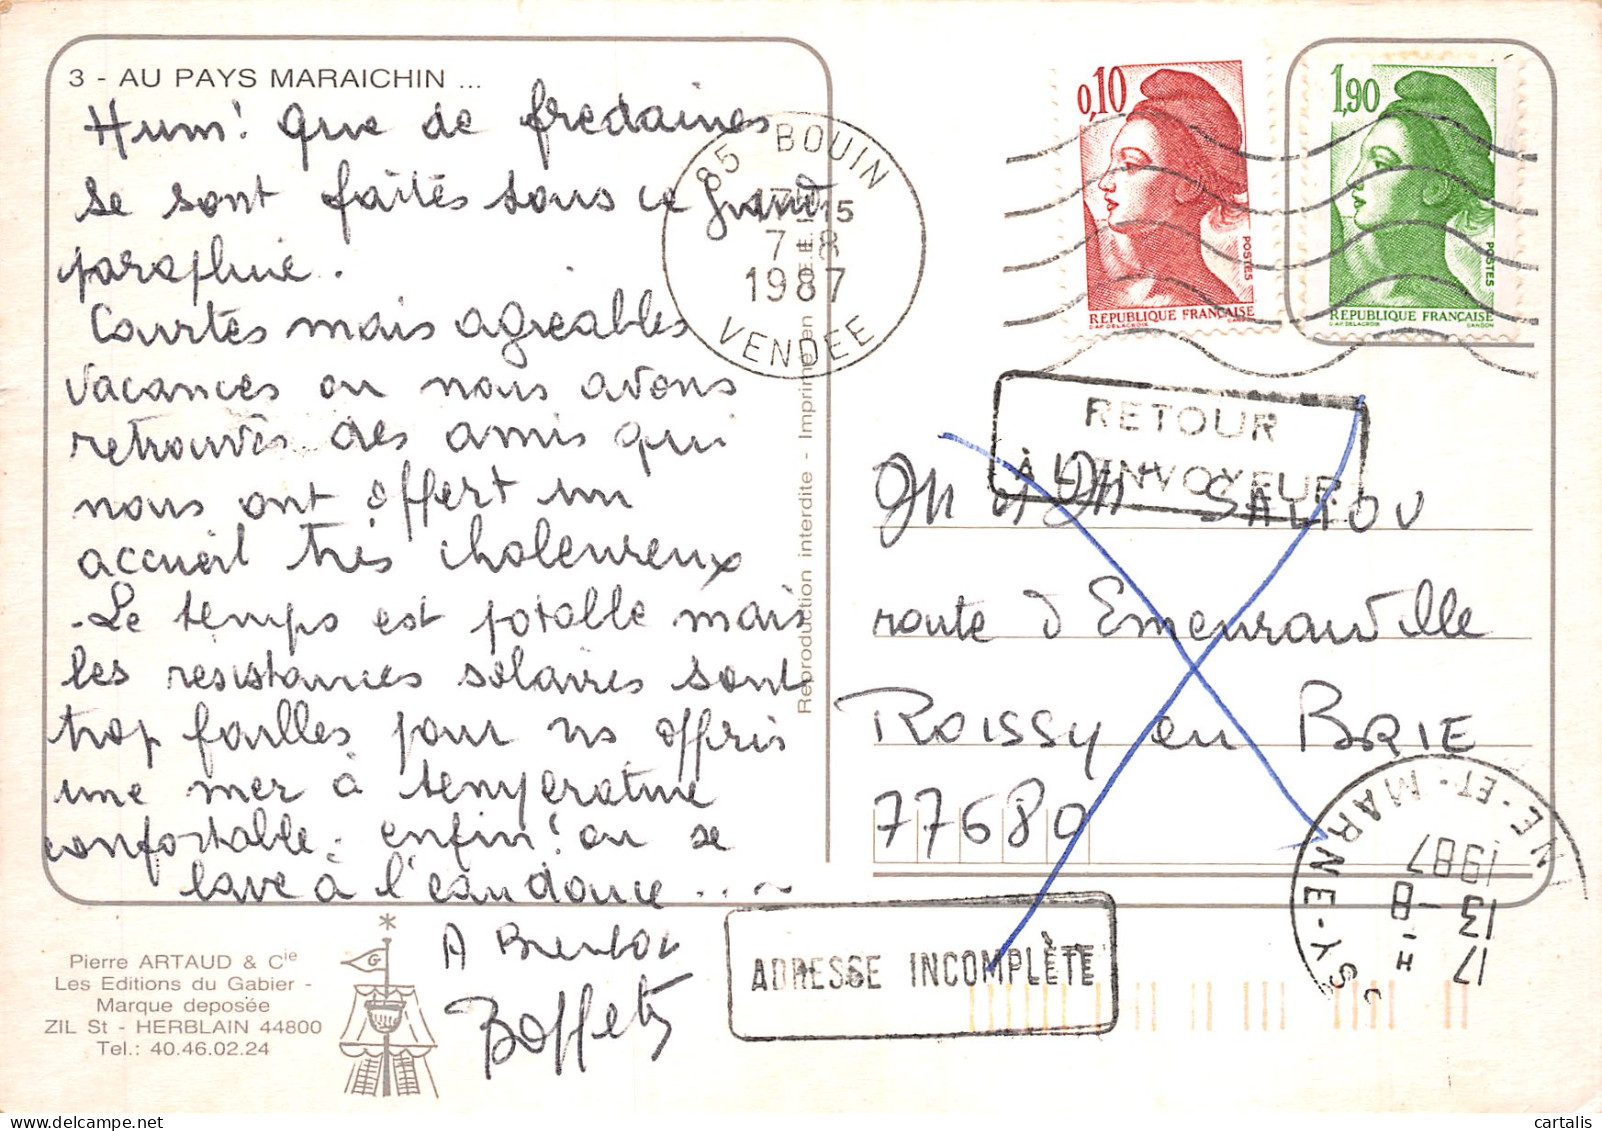 3 - AU PAYS MARAICHIN ...
Hum! que de fredaines
se sont faites sous ce grand
parapluie.
Courtes mais agréables
vacances ou nous avons
retrouvés des amis qui
nous ont offert un
accueil très chaleureux
- Le temps est potable mais
les résistances solaires sont
trop faibles pour ns offrir
une mer à température
confortable. enfin! on se
lave à l'eau douce ...
A Bientot
Pierre ARTAUD & Cie
Les Editions du Gabier -
Marque deposée
ZIL St - HERBLAIN 44800
Tel.: 40.46.02.24
G
Reproduction interdite - Imprimé en
85 BOUIN
15
7-8
1987
VENDEE
0,10
POSTES
REPUBLIQUE FRANÇAISE
D'AP. DELACROIX GANDON
1,90
POSTES
REPUBLIQUE FRANÇAISE
D'AP. DELACROIX GANDON
RETOUR
À L'ENVOYEUR
Mr et Mme SALIOU
route d'Emerainville
ROISSY en BRIE
77680
ADRESSE INCOMPLÈTE
17 H
13 -8
1987
NE-ET-MARNE
delcampe.net
cartalis